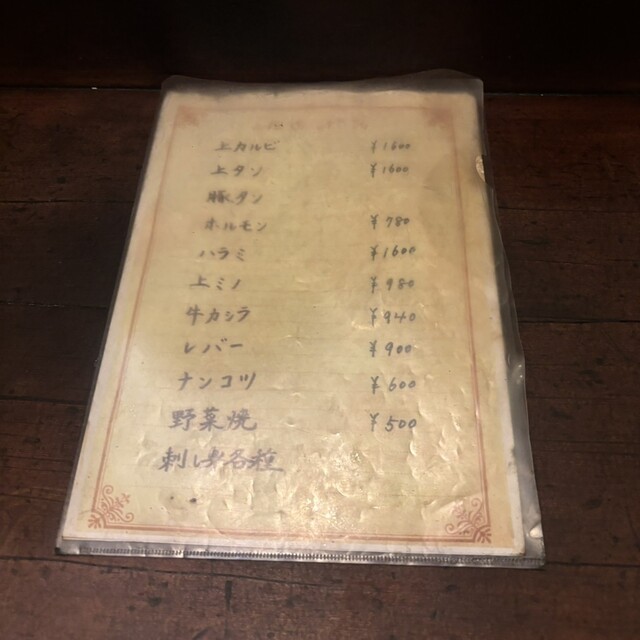 上カルビ ¥1600
上タン ¥1600
豚タン
ホルモン ¥780
ハラミ ¥1600
上ミノ ¥980
牛カシラ ¥940
レバー ¥900
ナンコツ ¥600
野菜焼 ¥500
刺し身各種